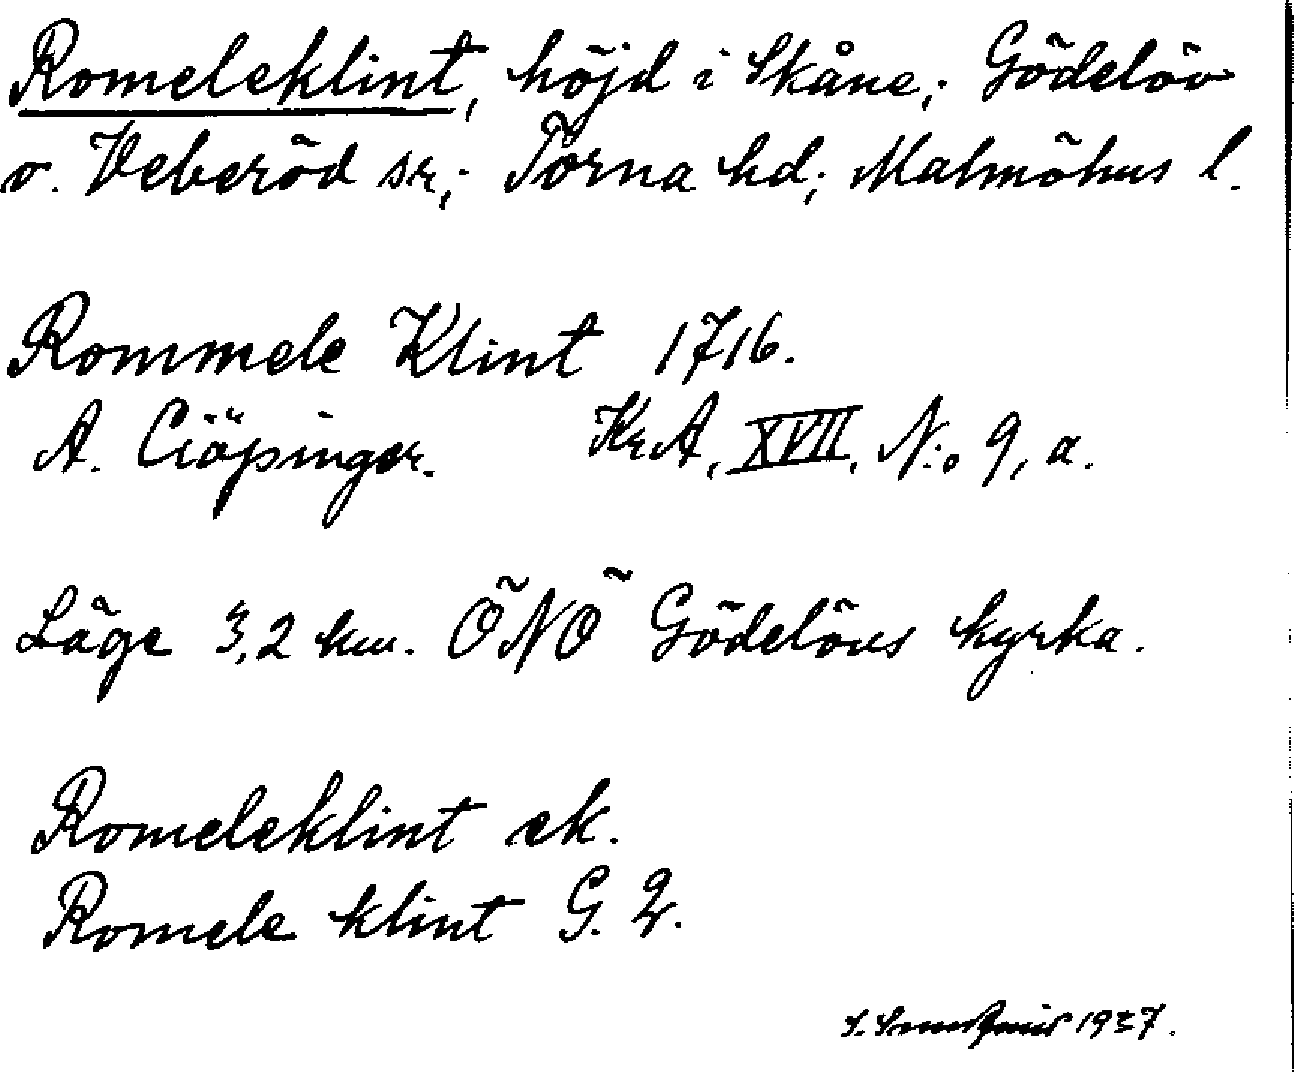 Romeleklint, höjd i Skåne; Gödelöv
o. Veberöd sr; Torna hd; Malmöhus l.
Rommele Klint 1716.
A. Ciöpinger. KrA, XVII, N:o 9, a.
Läge 3,2 km. ÖNÖ Gödelövs kyrka.
Romeleklint ek.
Romele klint G. 2.
1937.